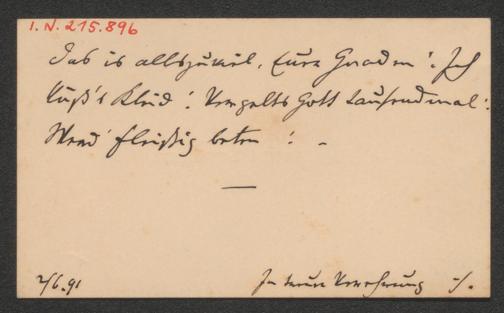 I.N. 215.896
Das is allszuviel, Eure Gnaden! Ich
küß's Kleid! Vergelts Gott tausendmal!
Werd' fleißig beten! –
—
2/6.91 In treuer Verehrung